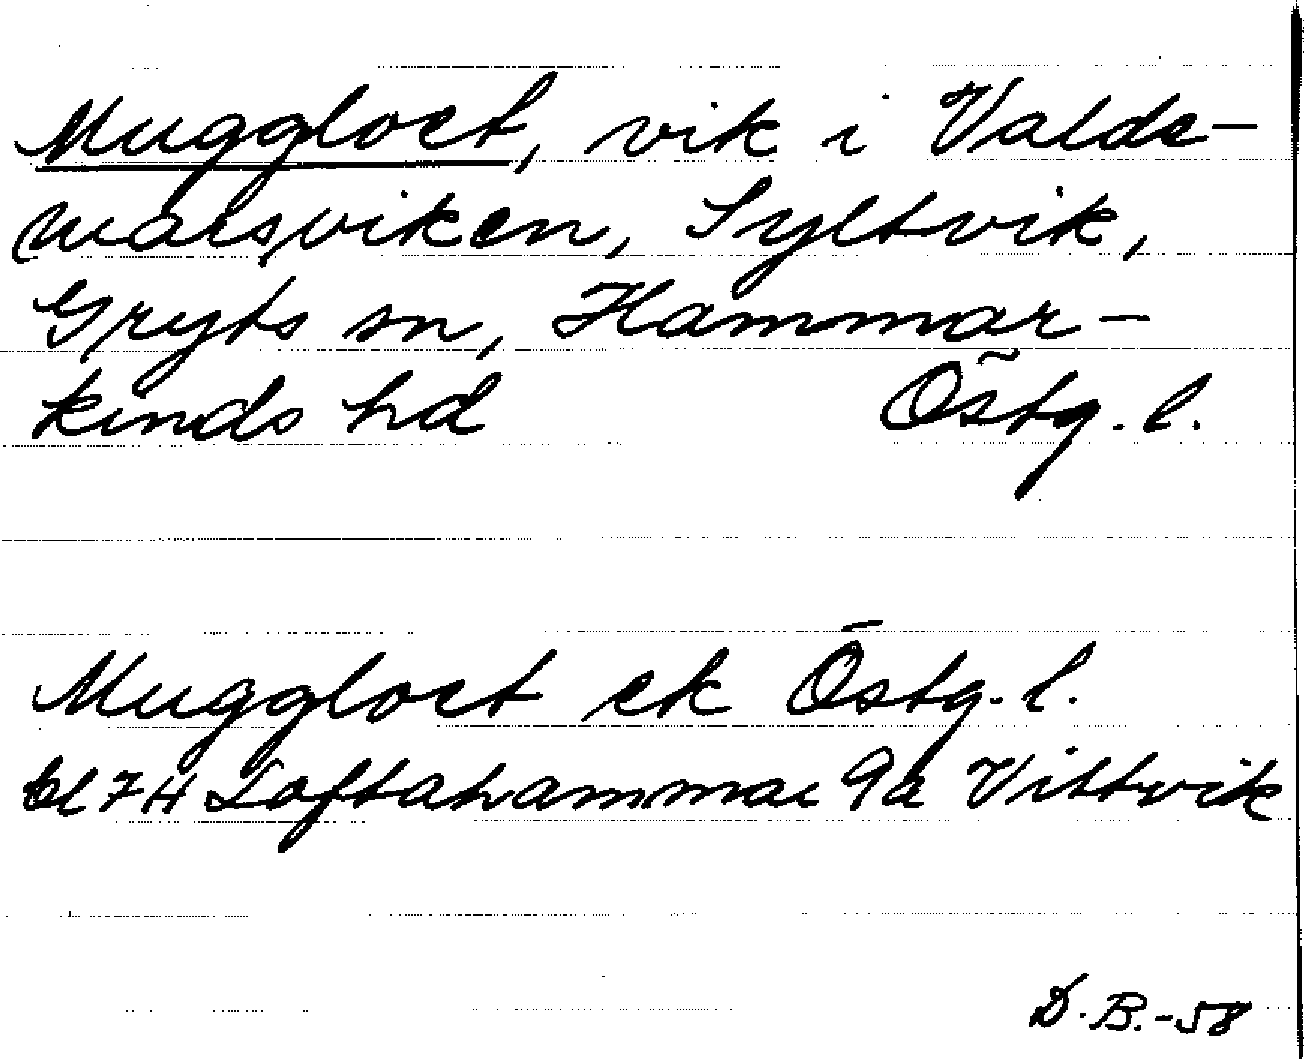 Muggloet, vik i Valde-
marsviken, Syltvik,
Gryts sn, Hammar-
kinds hd Östg. l.
Muggloet ek Östg. l.
bl 7 H Loftahammar 9a Vittvik
D. B. -58